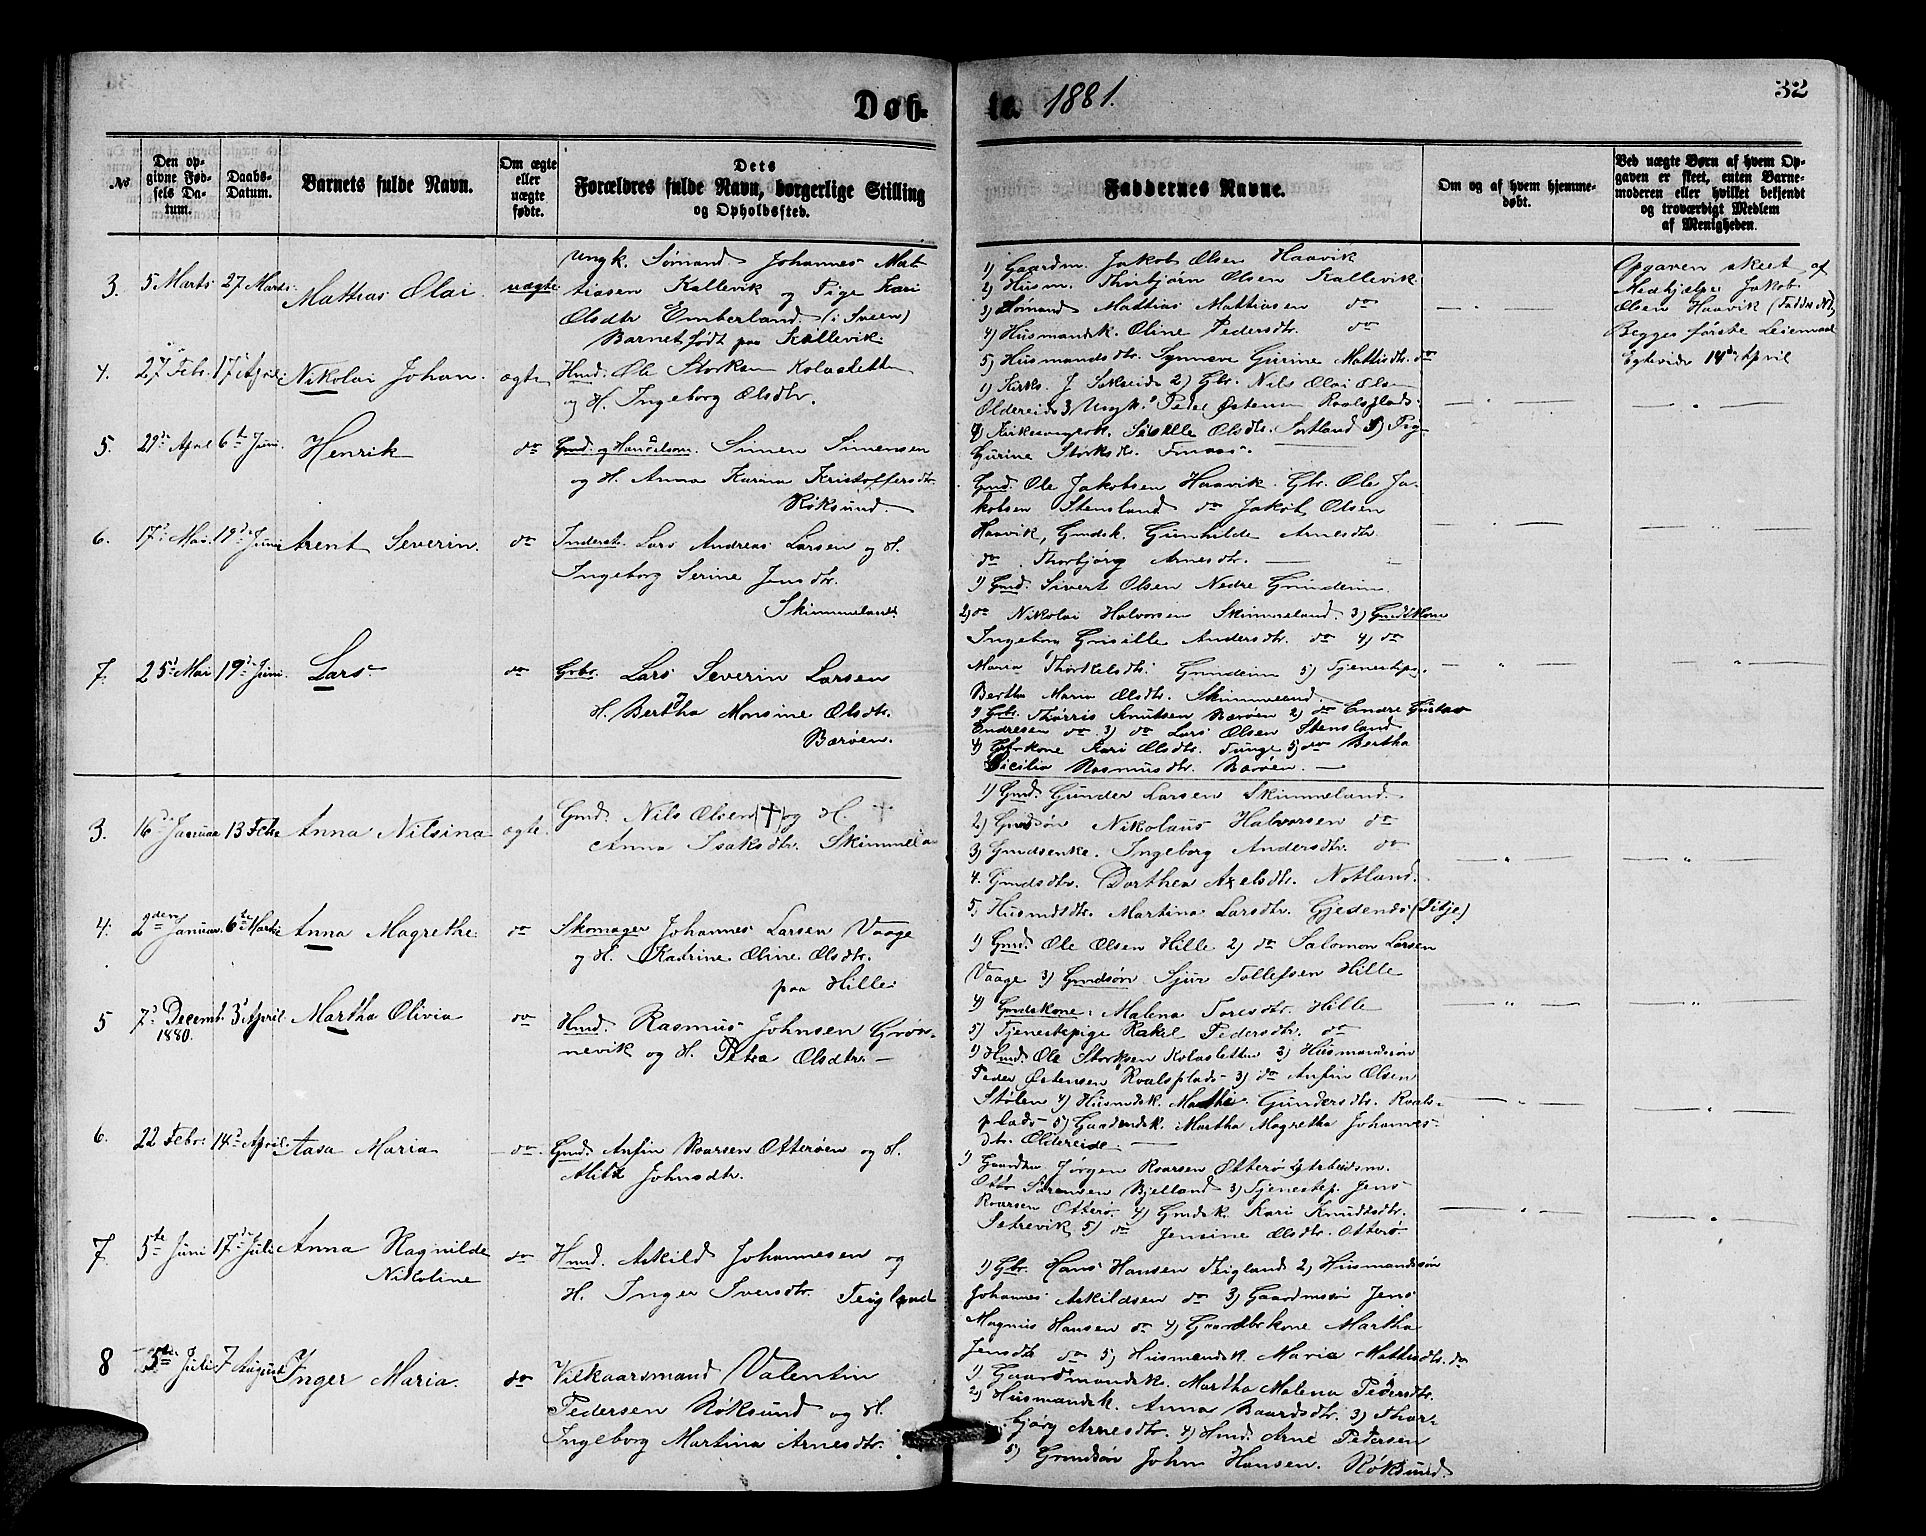 Døbte. 1881. 32
No
Den opgivne Fødsels Datum.
Daabs-Datum.
Barnets fulde Navn.
Om ægte eller uægte fødte.
Dets Forældres fulde Navn, borgerlige Stilling og Opholdssted.
Faddernes Navne.
Om og af hvem hjemmedøbt.
Ved uægte Børn af hvem Opgaven er skeet, enten Barnemoderen eller hvilket bekjendt og troværdigt Medlem af Menigheden.
3. 5 Marts 27 Marts. Mattias Olai. uægte
Ungk. Sømand Johannes Mat-
tiasen Kallevik og Pige Kari
Olsdtr Emberland. (i Sveen)
Barnet født paa Kallevik.
1) Gaardm. Jakob Olsen Haavik
2) Husm. Thorbjørn Olsen Kallevik
3) Sømand Mattias Mattiasen do
4) Husmandsk. Oline Pedersdtr. do
5) Husmandsdtr. Synneve Gurine Mattisdtr. do
Opgaven skeet af
Medhjelper Jakob
Olsen Haavik (Fadder No 1)
Begges første Leiermaal
Egteviede 14de April
4. 27 Febr. 17 April Nikolai Johan. ægte
Hmd. Ole Storksen Kolasletten
og H. Ingeborg Olsdtr.
1) Kirks. J Sakseide 2) Gbr. Nils Olai Olsen
Oldereide 3) Ungk. Peder Østensen Roalsplads.
4) Kirkesangersk. Sisille Olsdtr. Sortland 5) Pig
Gurine Storksdtr.
5. 29de April 6te Juni. Henrik do
Gmd. og Handelsm. Simen Simensen
og H. Anna Karina Kristoffersdtr.
Røksund.
Gmd. Ole Jakobsen Haavik. Gbr. Ole Ja-
kobsen Stensland do Jakob Olsen
Haavik, Gmdsk. Gunhilde Arnesdtr.
do Thorbjørg Arnesdtr.
6. 17de Mai. 19de Juni Arent Severin. do
Inderst. Lars Andreas Larsen og H.
Ingeborg Serine Jensdtr.
Skimmeland.
1) Gmd. Sivert Olsen Nedre Grindeim
2) do Nikolai Halvorsen Skimmeland. 3) Gmdskone
Ingeborg Grisille Andersdtr. do 4) do
Maria Thorkelsdtr. Grindeim 5) Tjenestepg.
Bertha Maria Olsdtr. Skimmeland
7. 25de Mai 19de Juni. Lars do
Gbr. Lars Severin Larsen
H. Bertha Monsine Olsdtr.
Bærøen.
1) Gbr. Thorris Knutsen Bærøen 2) do Endre Gustav
Endresen do 3) do Lars Olsen Stensland
4) Gbrkone Kari Olsdtr. Tunge 5) do Bertha
Sicilia Rasmusdtr. Bærøen.
3. 16de Januar 13 Febr Anna Nilsina ægte
Gmd. Nils Olsen (†) og H.
Anna Isaksdtr. Skimmela
1) Gmd. Gunder Larsen Skimmeland.
2) Gmdsøn Nikolaus Halvorsen do
3) Gmdsenke. Ingeborg Andersdtr. do
4. Gmdsdtr. Dorthea Axelsdtr. Notland.
5. Husmdsdtr. Martina Larsdtr. Gjedenes (Fitje)
4. 2den Januar. 6te Marts Anna Magrethe. do
Skomager Johannes Larsen Vaage
og H. Katrine Oline Olsdtr.
paa Hille.
1) Gmd. Ole Olsen Hille 2) do Salomon Larsen
Vaage 3) Gmdsøn Sjur Tollefsen Hille
4) Gmdskone. Malena Toresdtr. Hille
5) Tjenestepige Rakel Pedersdtr. do
5 7de Decemb. 1880. 3 April. Martha Olivia do
Hmd. Rasmus Johnsen Grøn-
nevik og H. Petra Olsdtr. —
1) Hmd. Ole Storksen Kolasletten 2) Husmandssøn
Peder Østensen Roalsplads 3) do Anfin Olsen
Stølen 4) Husmdsk. Marthe Gundersdtr. Roals-
plads 5) Gaardmdsk. Martha Magretha Johannes-
dtr. Oldereide.
6. 22 Febr. 14de April. Aasa Maria do.
Gmd. Anfin Roarsen Otterøen og H.
Alida Johnsdtr.
1) Gaardm Jørgen Roarsen Otterø 2) Arbeidsm.
Otto Sørensen Bjelland 3) Tjenestep. Jens
Roarsen Otterø. 4) Gmdsk. Kari Knudtsdtr.
Setrevik 5) do Jensine Olsdtr. Otterø.
7. 5te Juni 17de Juli Anna Ragnilde
Nicoline do
Hmd. Askild Johannesen og
H. Inger Iversdtr. Teigland
1) Gbr. Hans Hansen Teigland 2) Husmandssøn
Johannes Askildsen do 3) Gaardmssøn Jens
Magnus Hansen do 4) Gaardbrkone Martha
Jensdtr do 5) Husmandsk. Maria Mathisdtr. do
8 3die Juli 7 August Inger Maria. do
Vilkaarsmand Valentin
Pedersen Røksund og H.
Ingeborg Martina Arnesdtr.
1) Gaardmandsk. Martha Malena Pedersdtr.
2) Husmandsk. Anna Baardsdtr. 3) Thor-
bjørg Arnesdtr. 4) Hmd. Arne Pedersen
5) Grmdsøn John Hansen. Røksund.